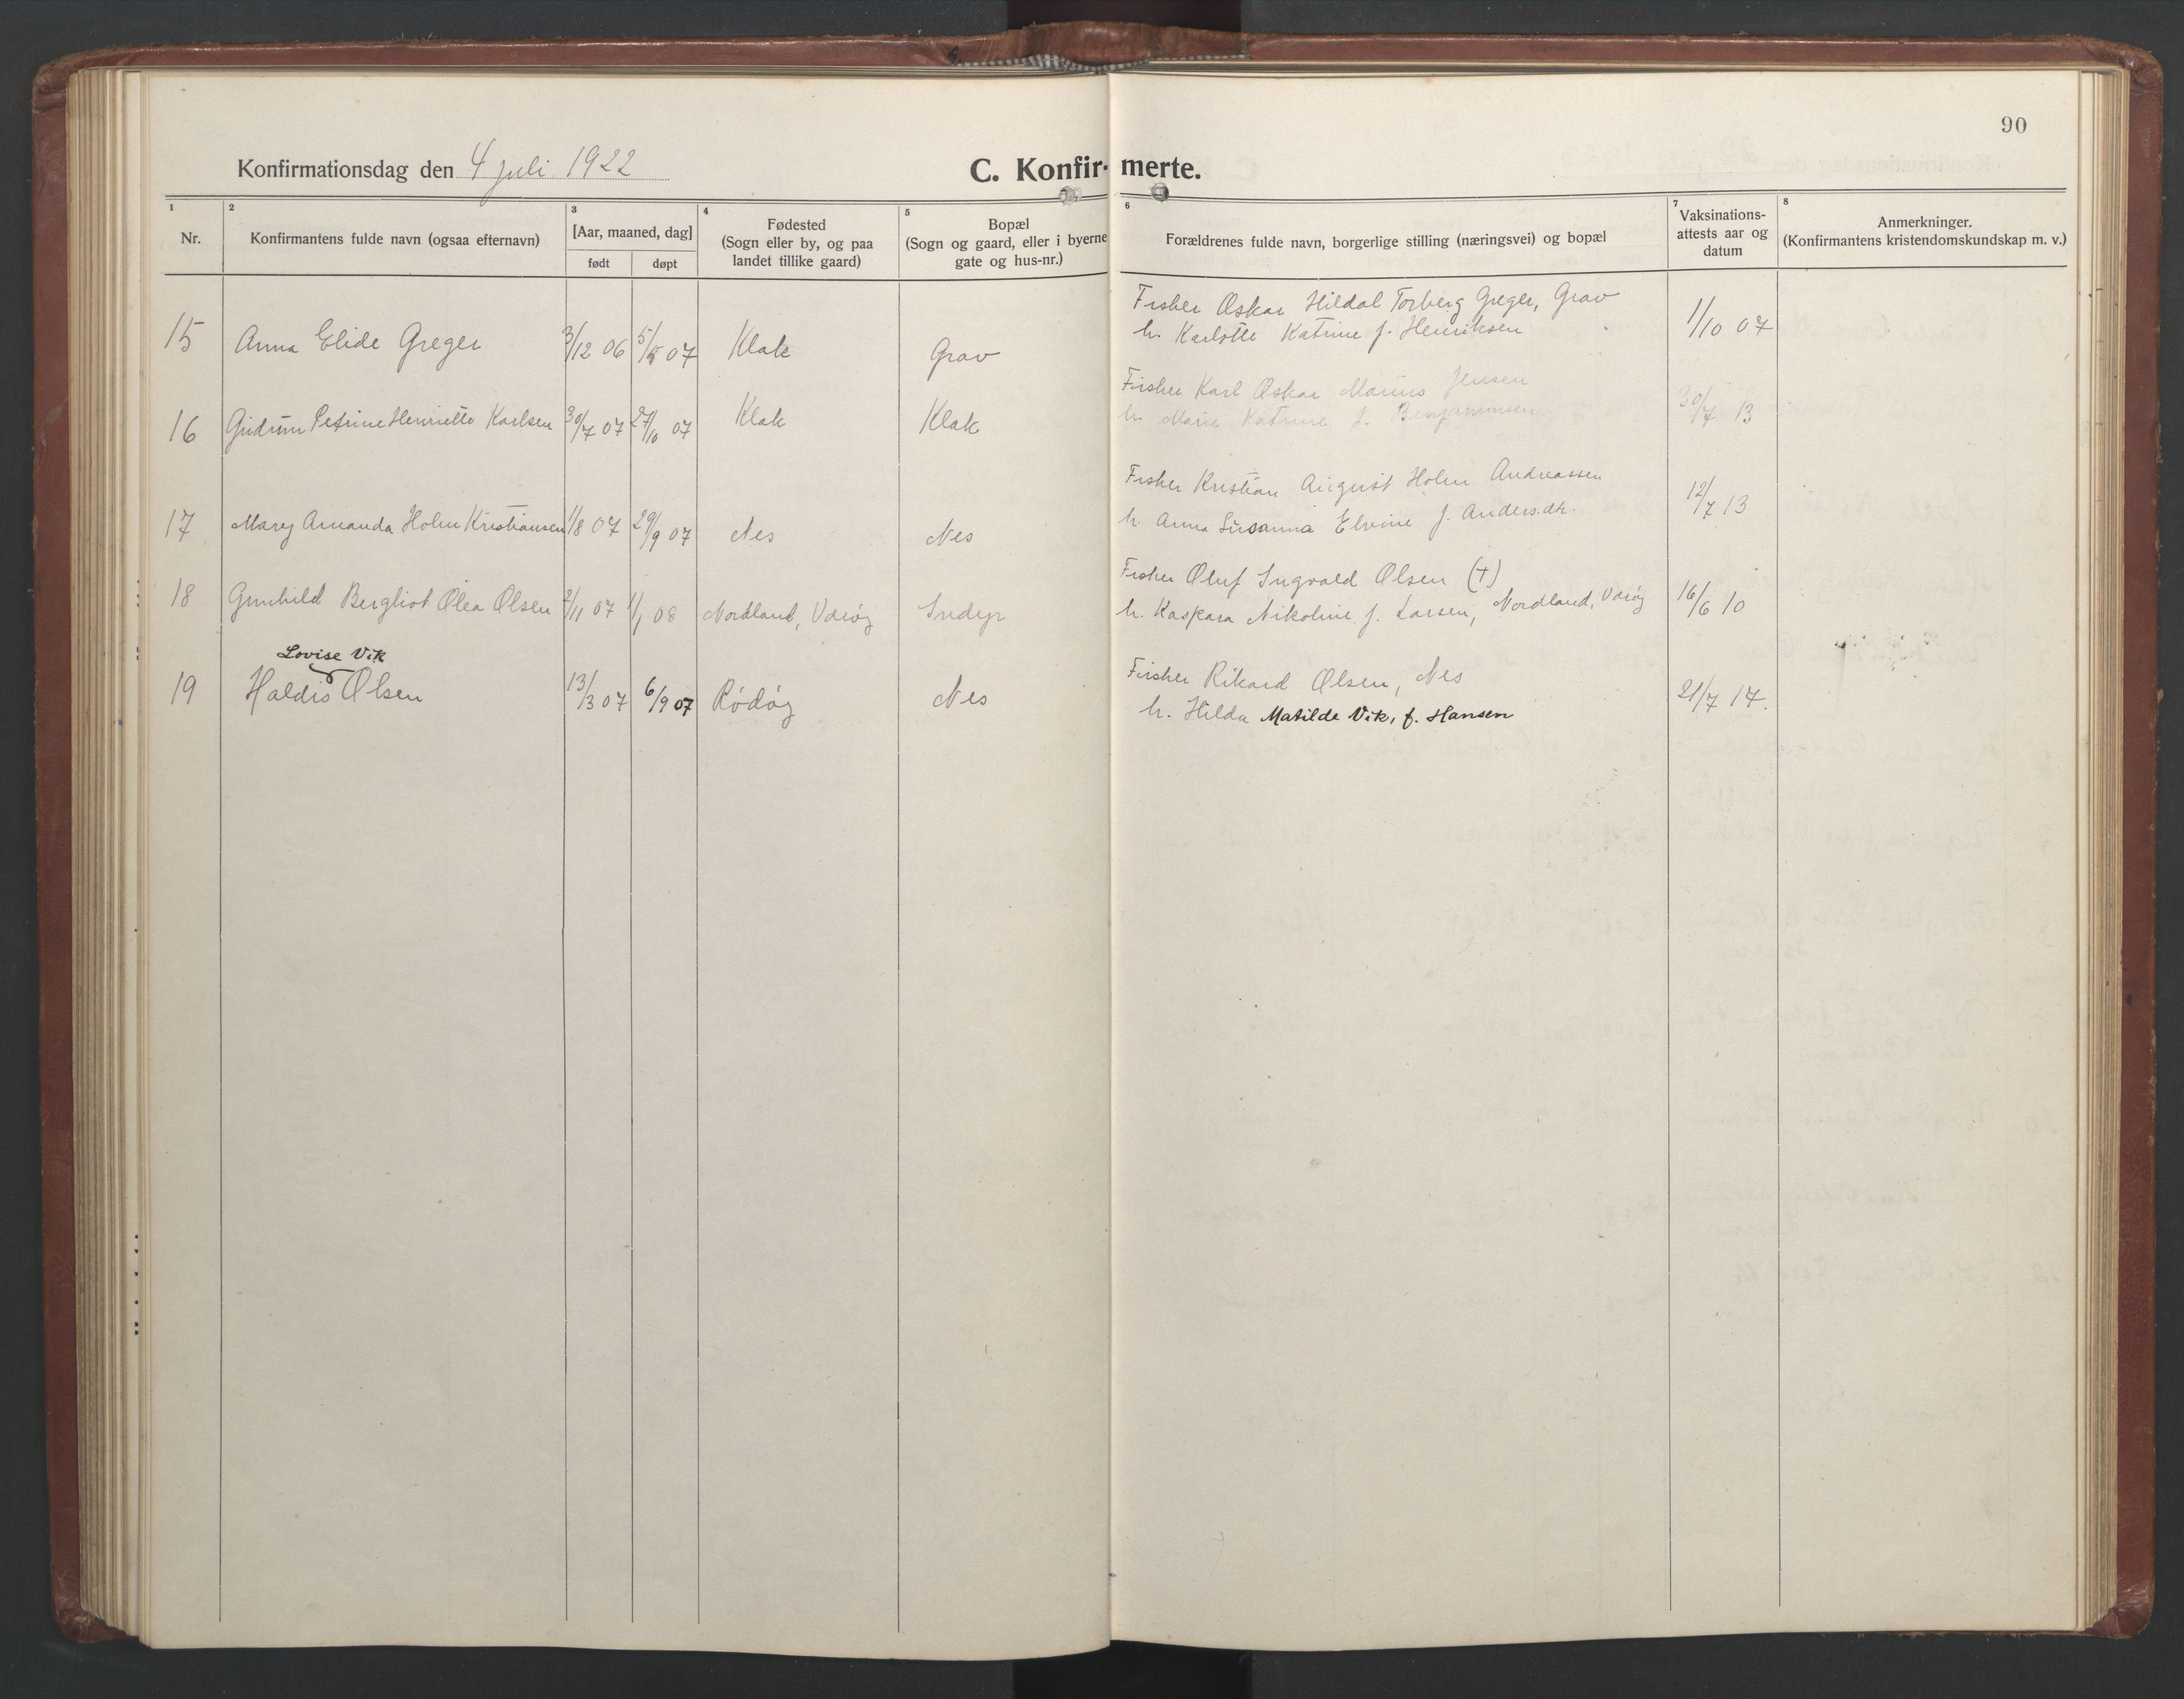 90
Konfirmationsdag den 4 juli 1922
C. Konfir- merte.
1 2 3 4 5 6 7 8
Nr.
Konfirmantens fulde navn (ogsaa efternavn)
[Aar, maaned, dag]
født døpt
Fødested
(Sogn eller by, og paa
landet tillike gaard)
Bopæl
(Sogn og gaard, eller i byerne
gate og hus-nr.)
Forældrenes fulde navn, borgerlige stilling (næringsvei) og bopæl
Vaksinations-
attests aar og
datum
Anmerkninger.
(Konfirmantens kristendomskundskap m. v.)
15 Anna Elide Greger 3/12 06 5/5 07 Klak Grav
Fisker Oskar Hildal Torberg Greger, Grav
h. Karlotte Katrine f. Henriksen
1/10 07
16 Gudrun Petrine Henriette Karlsen 30/7 07 27/10 07 Klak Klak
Fisker Karl Oskar Marius Jensen
h. Marie Katrine f. Benjaminsen
30/7 13
17 Mary Amanda Holm Kristiansen 1/8 07 29/9 07 Nes Nes
Fisker Kristian August Holm Andreassen
h. Anna Susanna Elvine f. Anders.dtr.
12/7 13
18 Gunhild Bergliot Olea Olsen 2/11 07 1/1 08 Nordland, Værøy Indyr
Fisker Oluf Ingvald Olsen (†)
h. Kaspara Nikoline f. Larsen, Nordland, Værøy
16/6 10
Lovise Vik
19 Haldis Olsen 13/3 07 6/9 07 Rødøy Nes
Fisker Rikard Olsen, Nes
h. Hilda Matilde Vik, f. Hansen
21/7 17.